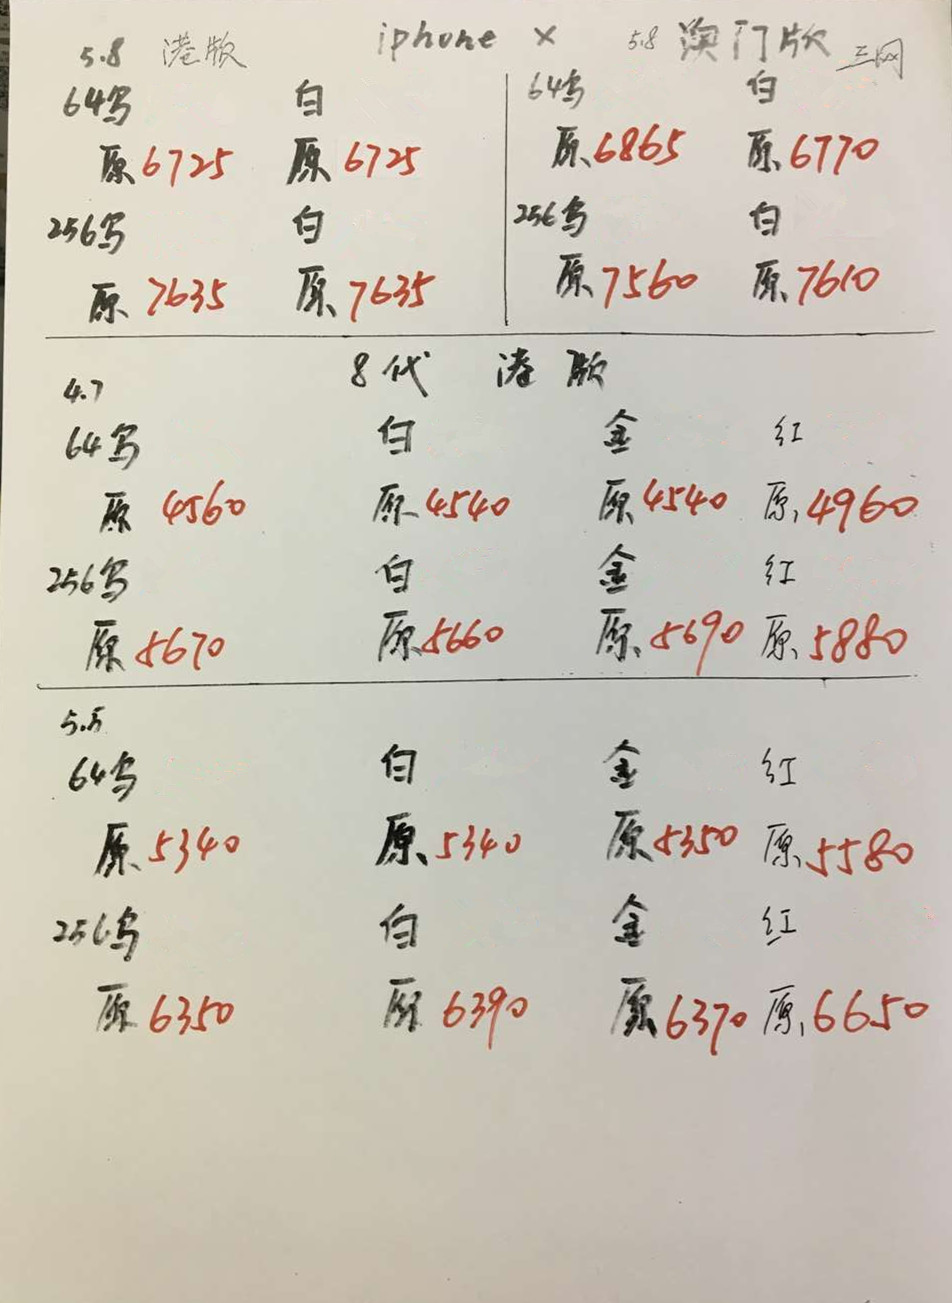 iphone x
5.8 港版
64乌 白
原 6725 原 6725
256乌 白
原 7635 原 7635
5.8 澳门版 三网
64乌 白
原 6865 原 6770
256乌 白
原 7560 原 7610
8代 港版
4.7
64乌 白 金 红
原 4560 原 4540 原 4540 原 4960
256乌 白 金 红
原 5670 原 5660 原 5690 原 5880
5.5
64乌 白 金 红
原 5340 原 5340 原 5350 原 5580
256乌 白 金 红
原 6350 原 6390 原 6370 原 6650